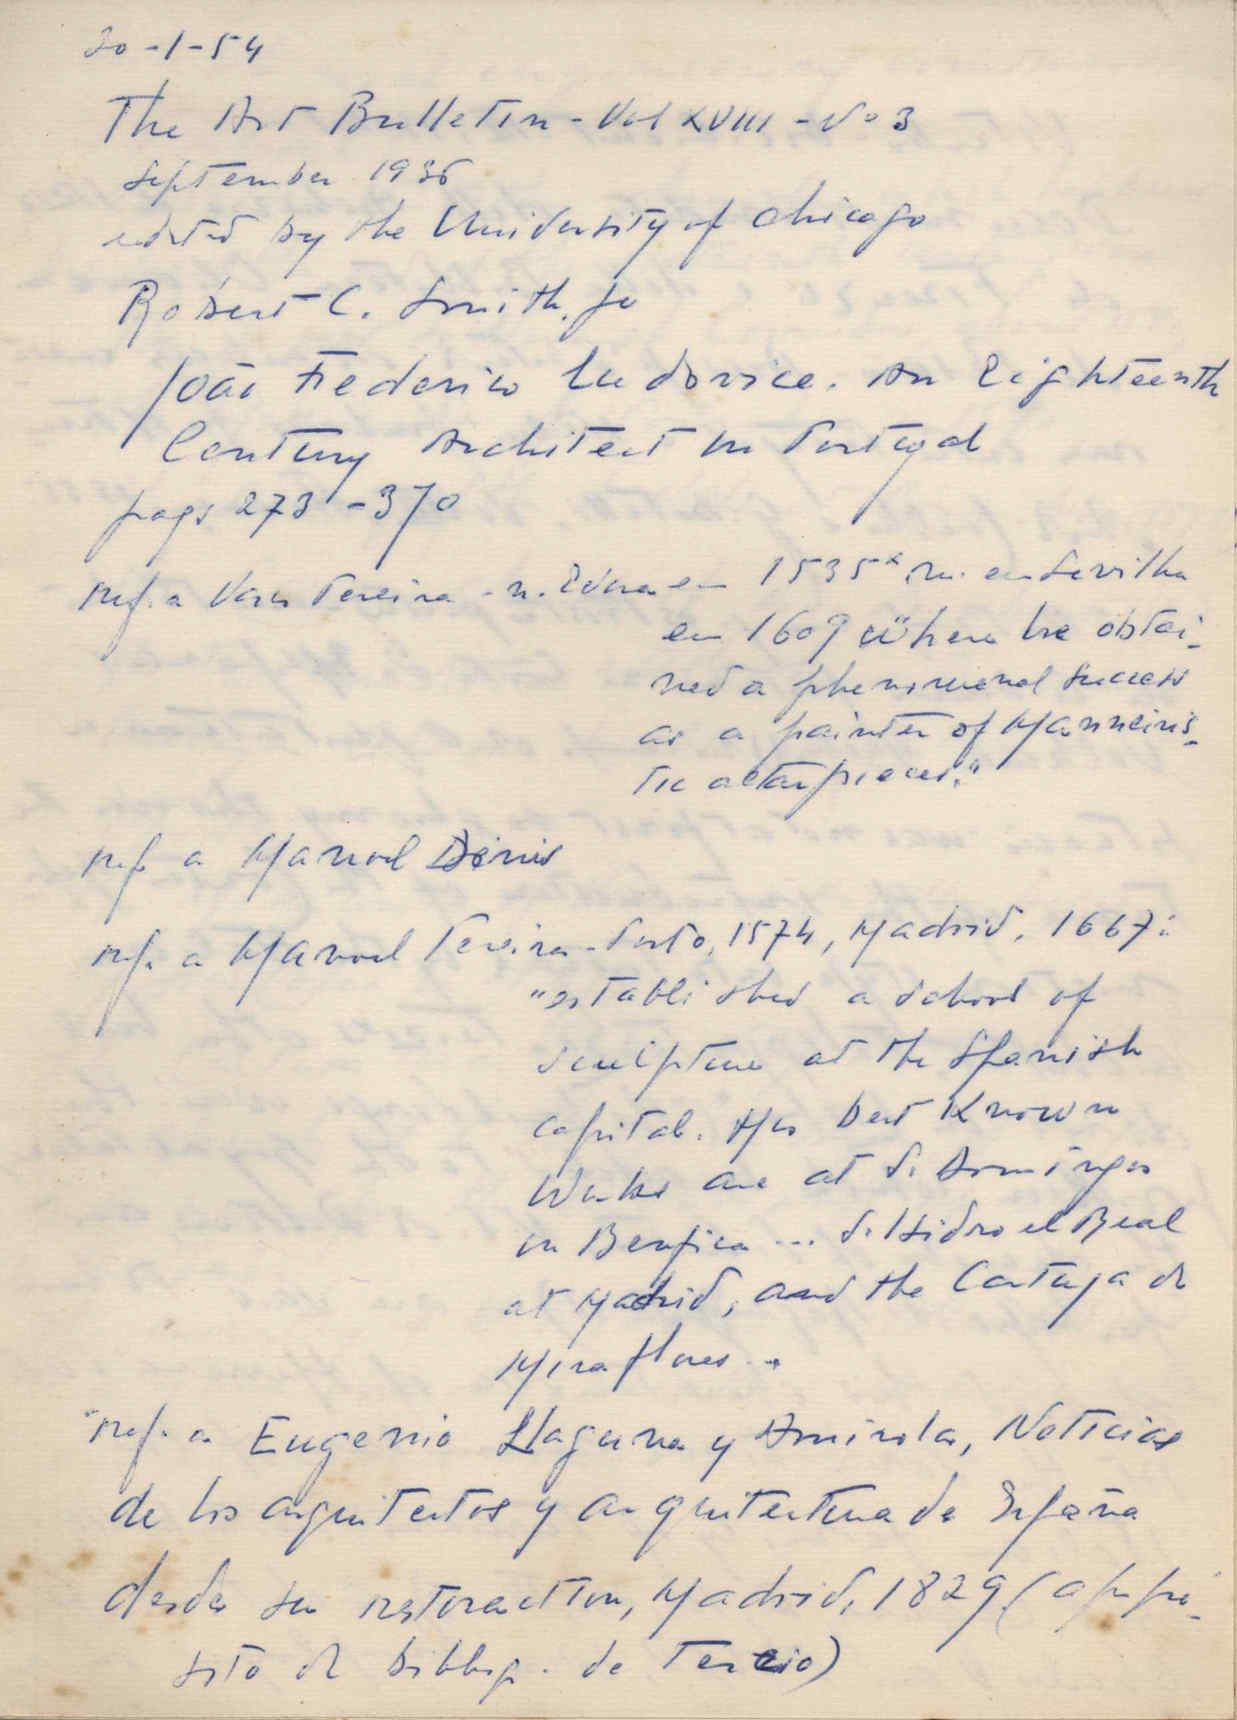 20-1-54
The Art Bulletin - Vol XVIII - No 3
September 1936
edited by the University of Chicago
Robert C. Smith, Jr
João Frederico Ludovice. An Eighteenth
Century Architect in Portugal
pags 273 - 370
ref. a Vasco Pereira - n. Évora em 1535 m. em Sevilha
em 1609 "where he obtai-
ned a phenomenal success
as a painter of Manneris-
tic altarpieces."
ref. a Manoel Dinis
ref. a Manoel Pereira - Porto, 1574, Madrid, 1667:
"established a school of
sculpture at the Spanish
capital. His best known
works are at S. Domingos
in Benfica ... S. Isidro el Real
at Madrid, and the Cartuja de
Miraflores ..
ref. a Eugenio Llaguna y Amirola, Noticias
de los arquitectos y arquitectura de España
desde su restauration, Madrid, 1829 (a propó-
sito de bibliog. de Terzio)